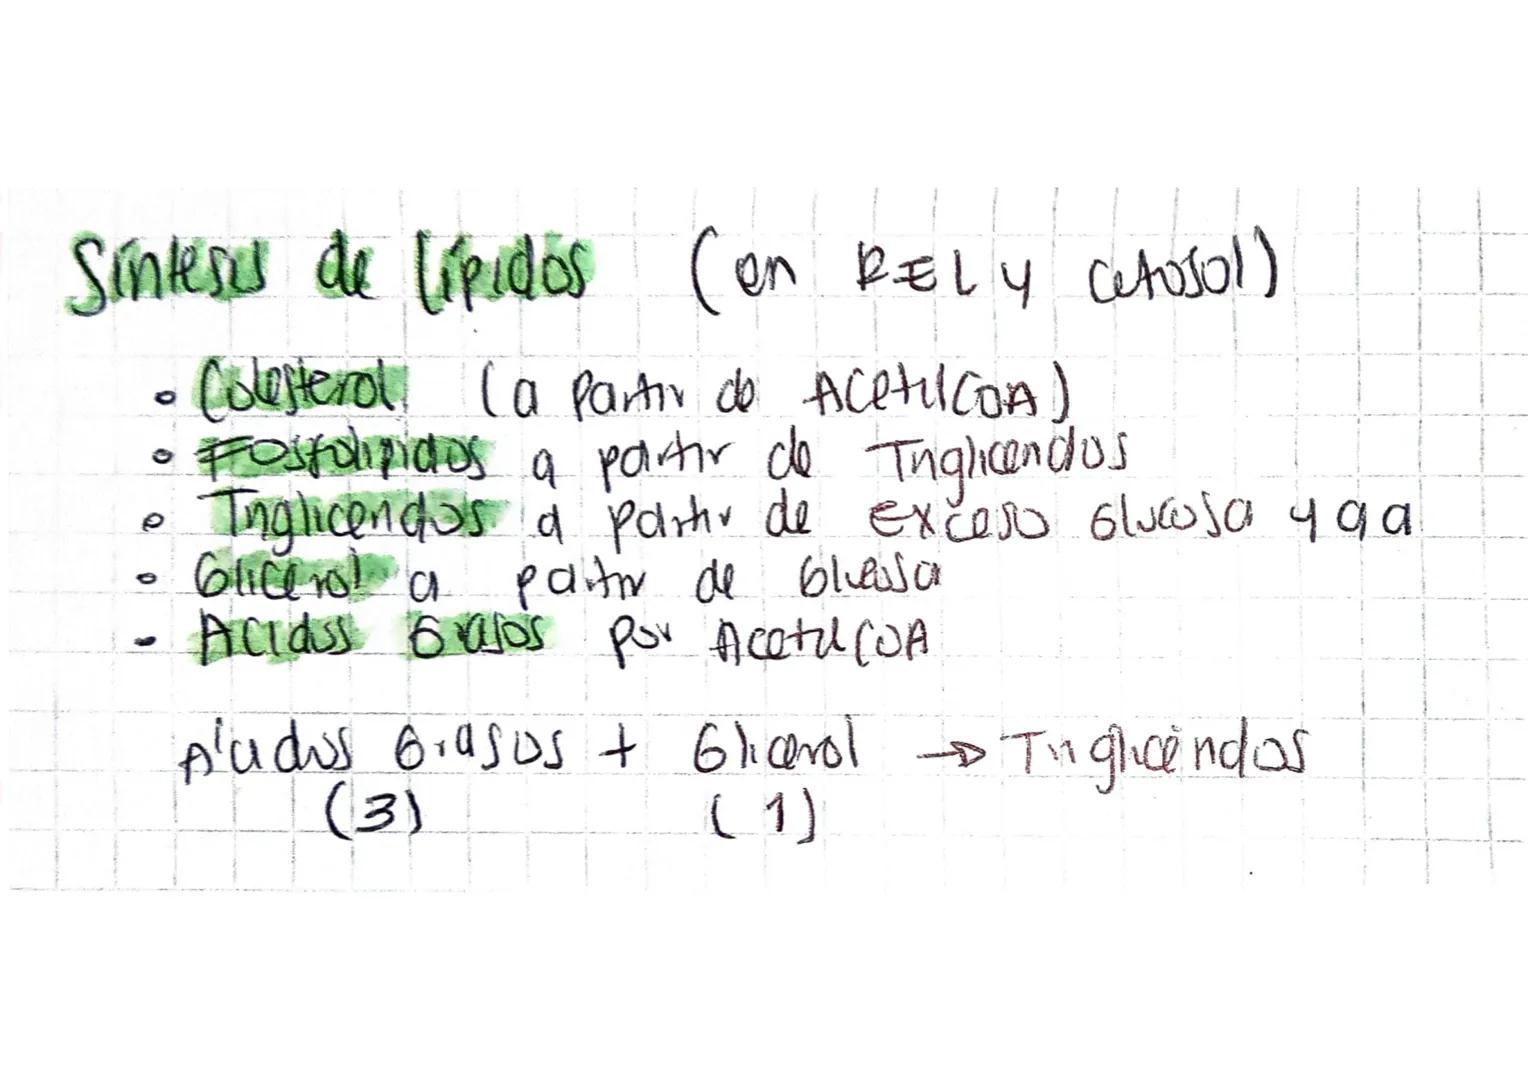 Síntesis de lípidos (en REL y citosol)
• Colesterol (a partir de Acetil CoA)
• Fosfolípidos a partir de Triglicéridos
• Triglicéridos a partir de Exceso Glucosa y g a
• Glicerol a partir de Glucosa
- Acidos Grasos por Acetil COA
Ácidos Grasos + Glicerol → Triglicéridos
(3) (1)